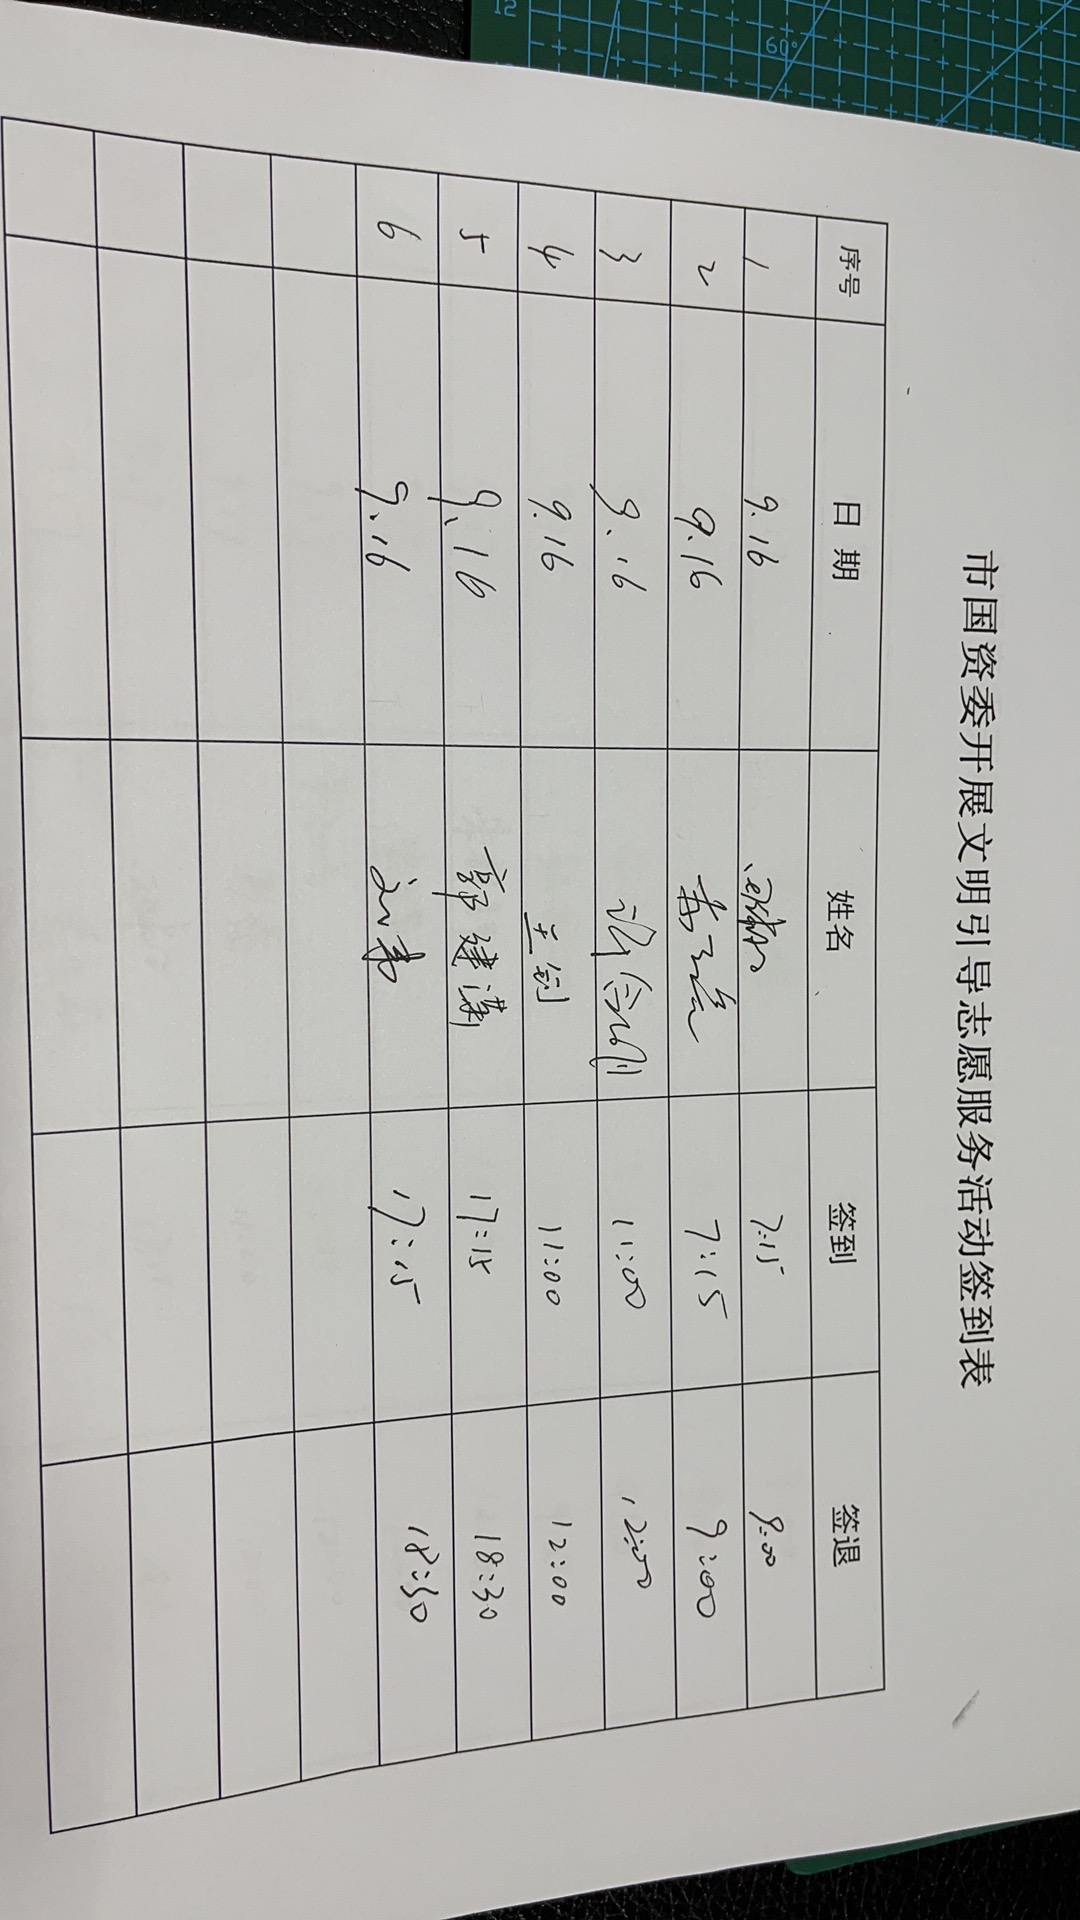 市国资委开展文明引导志愿服务活动签到表
序号 日期 姓名 签到 签退
1 9.16 7:15 9:00
2 9.16 7:15 9:00
3 9.16 11:00 12:00
4 9.16 11:00 12:00
5 9.16 郭建潇 17:15 18:30
6 9.16 17:15 18:30
12
60°